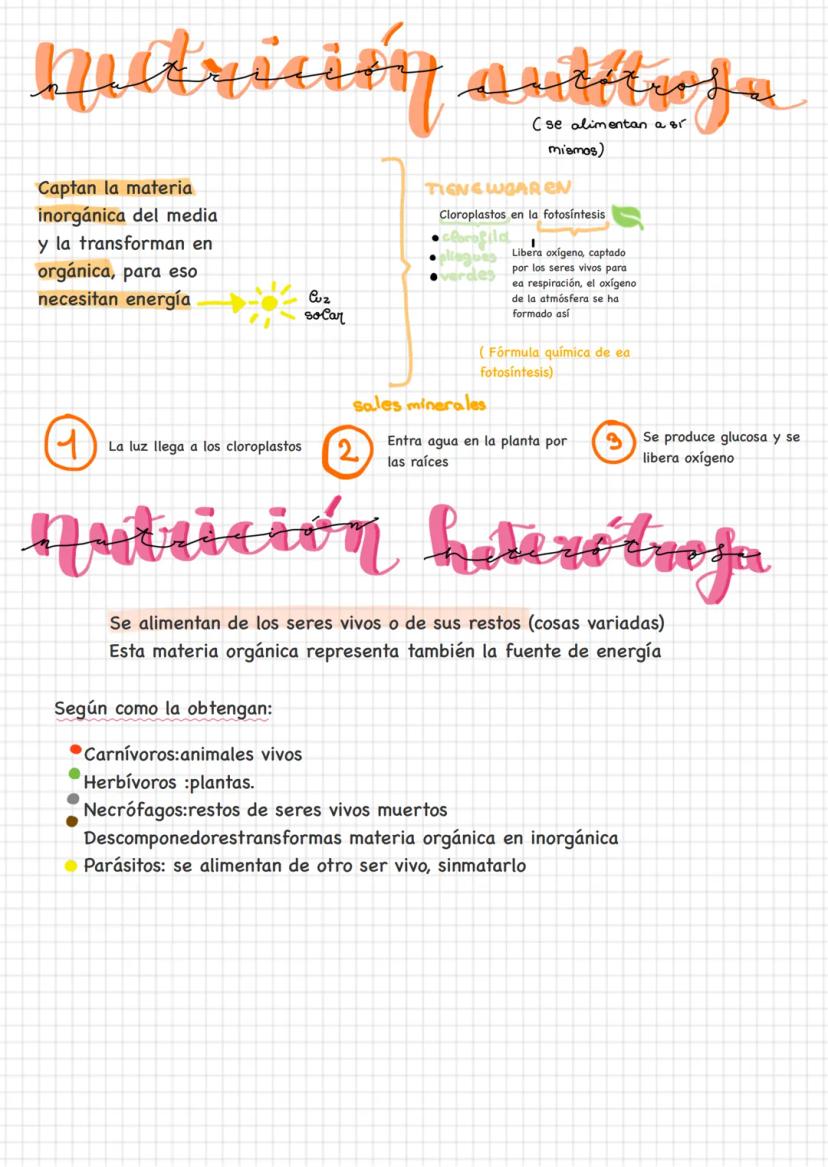 nutrición autótrofa
(se alimentan a sí
mismos)
Captan la materia
inorgánica del media
y la transforman en
orgánica, para eso
necesitan energía
luz
solar
TIENE LUGAR EN
Cloroplastos en la fotosíntesis
• clorofila
• pliegues
• verdes
Libera oxígeno, captado
por los seres vivos para
ea respiración, el oxígeno
de la atmósfera se ha
formado así
( Fórmula química de ea
fotosíntesis)
sales minerales
1 La luz llega a los cloroplastos
2 Entra agua en la planta por
las raíces
3 Se produce glucosa y se
libera oxígeno
nutrición heterótrofa
Se alimentan de los seres vivos o de sus restos (cosas variadas)
Esta materia orgánica representa también la fuente de energía
Según como la obtengan:
Carnívoros:animales vivos
Herbívoros :plantas.
Necrófagos:restos de seres vivos muertos
Descomponedorestransformas materia orgánica en inorgánica
Parásitos: se alimentan de otro ser vivo, sinmatarlo